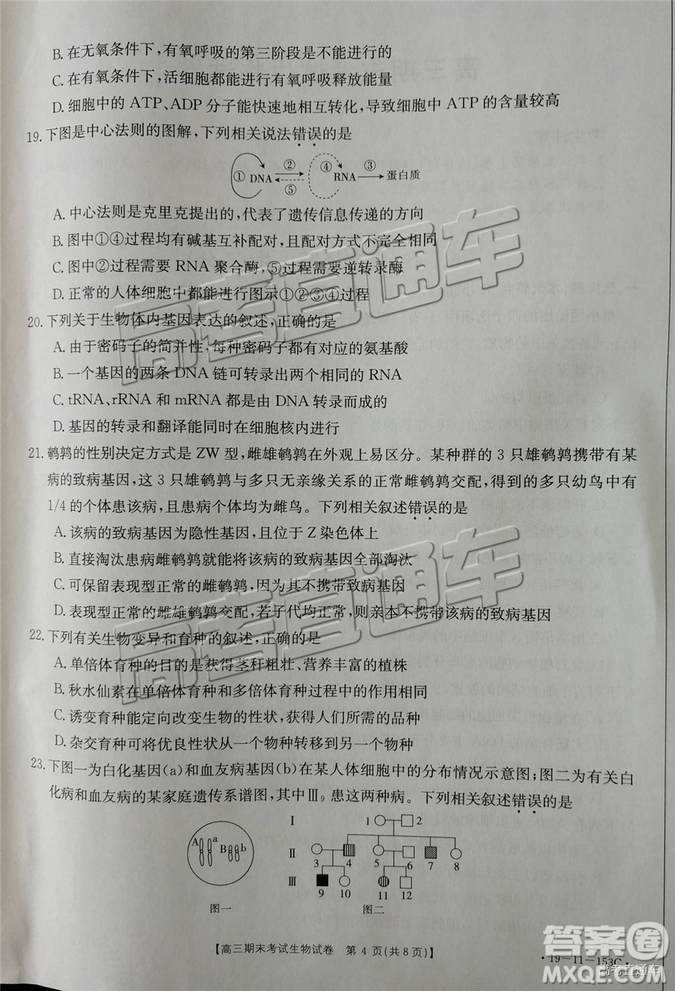 B. 在无氧条件下,有氧呼吸的第三阶段是不能进行的
C. 在有氧条件下,活细胞都能进行有氧呼吸释放能量
D. 细胞中的 ATP、ADP 分子能快速地相互转化,导致细胞中 ATP 的含量较高
19. 下图是中心法则的图解,下列相关说法错误的是
① DNA ② ⑤ RNA ④ ③ 蛋白质
A. 中心法则是克里克提出的,代表了遗传信息传递的方向
B. 图中①④过程均有碱基互补配对,且配对方式不完全相同
C. 图中②过程需要 RNA 聚合酶,⑤过程需要逆转录酶
D. 正常的人体细胞中都能进行图示①②③④过程
20. 下列关于生物体内基因表达的叙述,正确的是
A. 由于密码子的简并性,每种密码子都有对应的氨基酸
B. 一个基因的两条 DNA 链可转录出两种不同的 RNA
C. tRNA、rRNA 和 mRNA 都是 DNA 转录而来的
D. 基因的转录和翻译能同时在细胞核内进行
21. 鹌鹑的性别决定方式是 ZW 型,雌雄鹌鹑在外观上易区分。某种群的 3 只雄鹌鹑携带有某
病的致病基因,这 3 只雄鹌鹑与多只无亲缘关系的正常雌鹌鹑交配,得到的多只幼鸟中有
1/4 的个体患该病,且患病个体均为雌鸟。下列相关叙述错误的是
A. 该病的致病基因为隐性基因,且位于 Z 染色体上
B. 直接淘汰患病雌鹌鹑就能将该病的致病基因全部淘汰
C. 可保留表现型正常的雌鹌鹑,因为其不携带致病基因
D. 表现型正常的雌雄鹌鹑交配,若子代均正常,则亲本不携带该病的致病基因
22. 下列有关生物变异和育种的叙述,正确的是
A. 单倍体育种的目的是获得茎秆粗壮、营养丰富的植株
B. 秋水仙素在单倍体育种和多倍体育种过程中的作用相同
C. 诱变育种能定向改变生物的性状,获得人们所需的品种
D. 杂交育种可将优良性状从一个物种转移到另一个物种
23. 下图一为白化基因(a)和血友病基因(b)在某人体细胞中的分布情况示意图;图二为有关白
化病和血友病的某家庭遗传系谱图,其中Ⅲ₉ 患这两种病。下列相关叙述错误的是
Ⅰ 1 2
A a B b
Ⅱ 3 4 5 6 7 8
Ⅲ 9 10 11 12
图一 图二
【高三期末考试生物试卷 第 4 页(共 8 页)】
·19-11-153C·
高考直通车
高考直通车
高考直通车
MXQE.COM